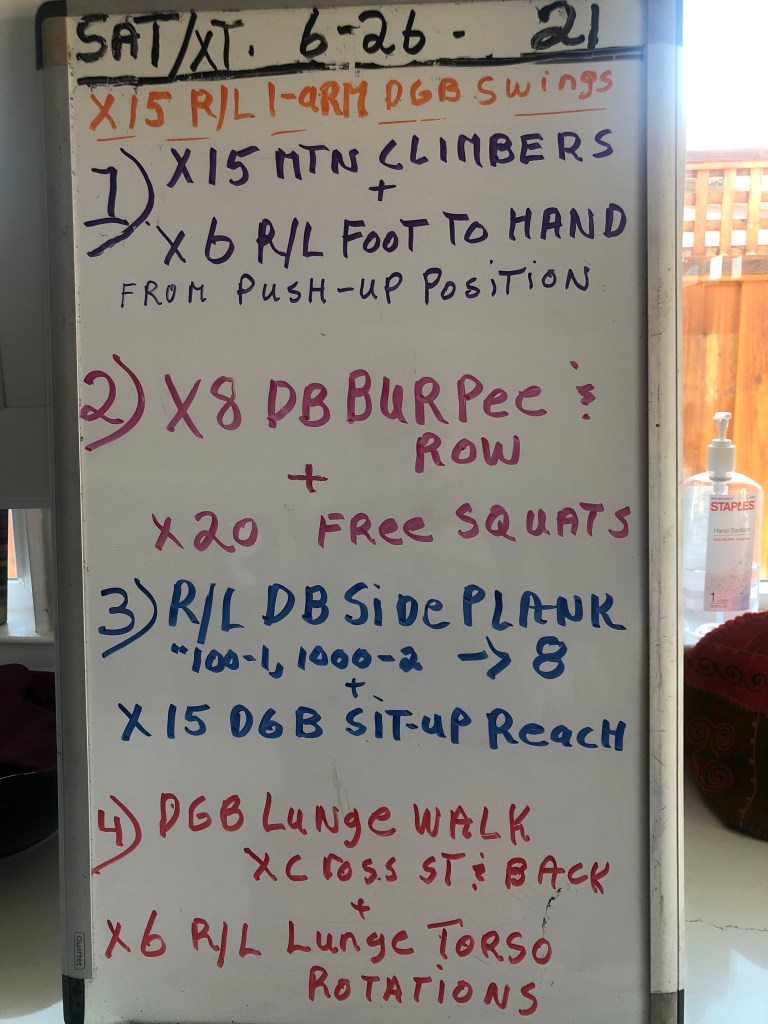 SAT/XT. 6-26-21
X15 R/L 1-ARM DGB SWings
1) X15 MTN CLIMBERS
+
X6 R/L FOOT TO HAND
FROM PUSH-UP POSITION
2) X8 DB BURPee &
ROW
+
X20 FRee SQUATS
3) R/L DB SiDe PLANK
"100-1, 1000-2 → 8
+
X15 DGB SIT-UP ReacH
4) DGB LuNge WALK
XCross ST & BACK
+
X6 R/L Lunge TORSO
ROTATIONS
Quartet
STAPLES
Hand Sanitizer
1